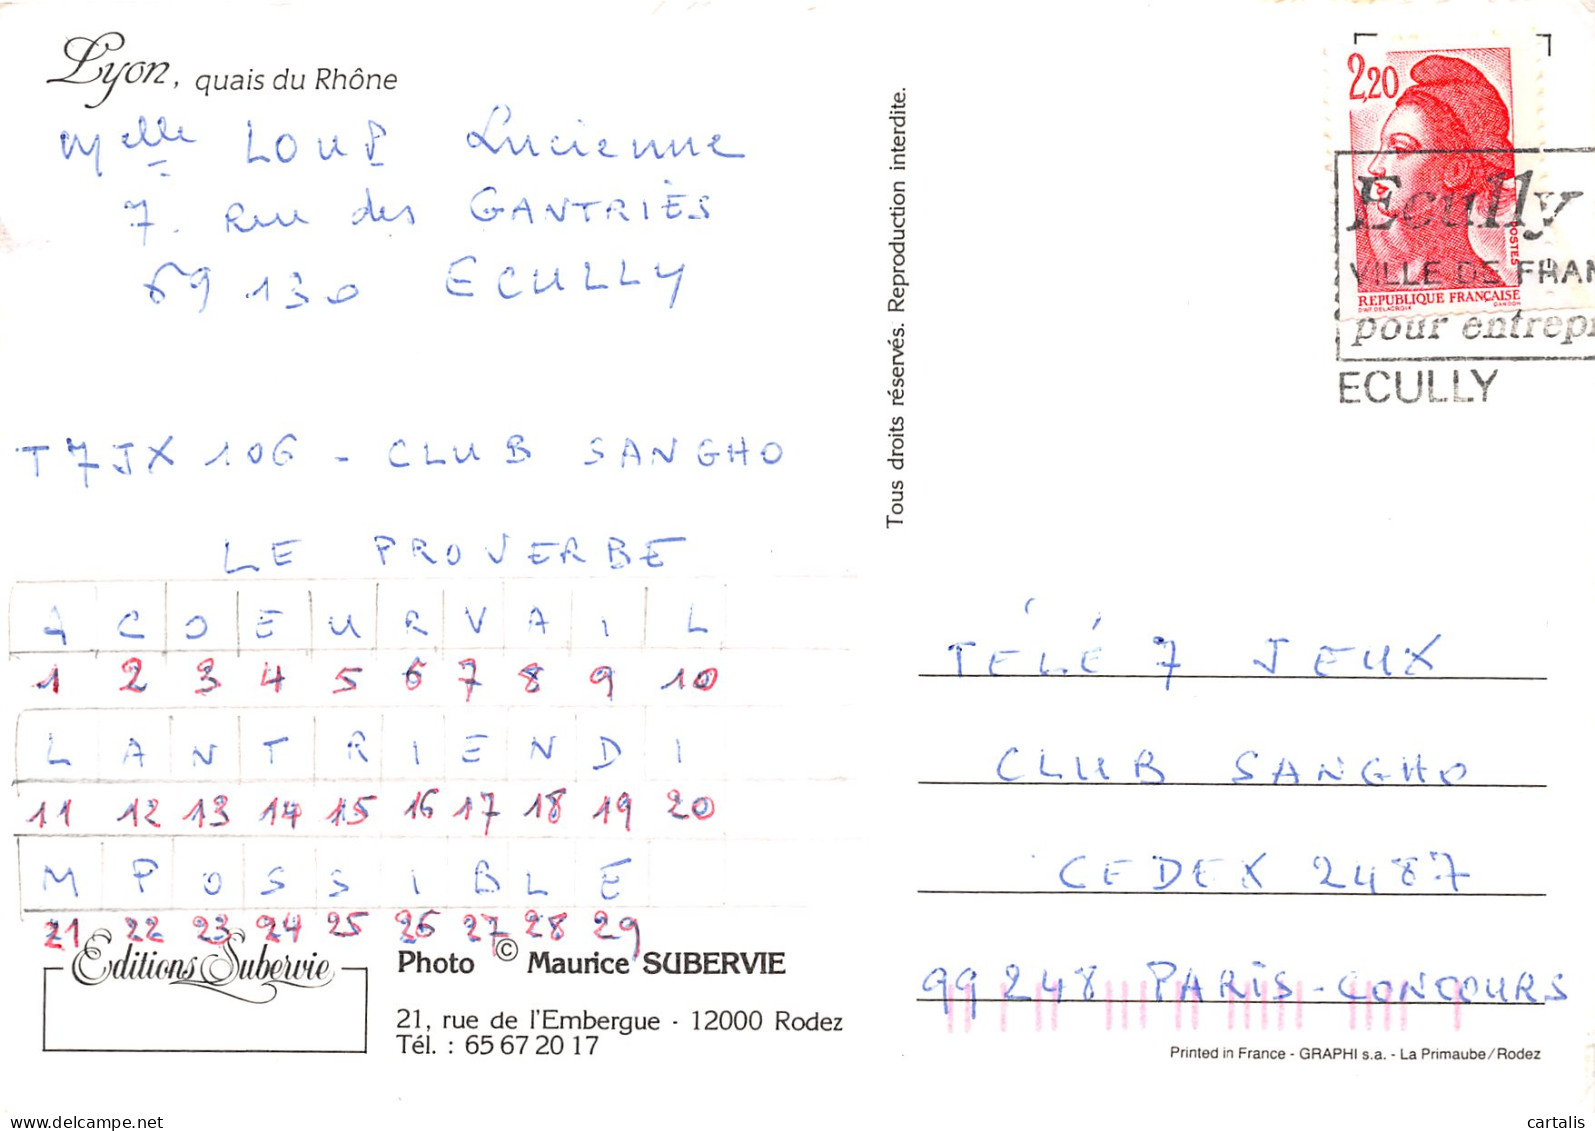 Lyon, quais du Rhône
Melle LOUP Lucienne
7. Rue des GANTRIÈS
69130 ECULLY
T7JX 106 - CLUB SANGHO
LE PROVERBE
A C O E U R V A I L
1 2 3 4 5 6 7 8 9 10
L A N T R I E N D I
11 12 13 14 15 16 17 18 19 20
M P O S S I B L E
21 22 23 24 25 26 27 28 29
Editions Subervie
Photo © Maurice SUBERVIE
21, rue de l'Embergue - 12000 Rodez
Tél. : 65 67 20 17
Tous droits réservés. Reproduction interdite.
2,20
POSTES
REPUBLIQUE FRANÇAISE
D'AP. DELACROIX GANDON
Ecully
VILLE DE FRAN
pour entrepr
ECULLY
TÉLÉ 7 JEUX
CLUB SANGHO
CEDEX 2487
99248 PARIS-CONCOURS
Printed in France - GRAPHI s.a. - La Primaube/Rodez
cartalis
delcampe.net